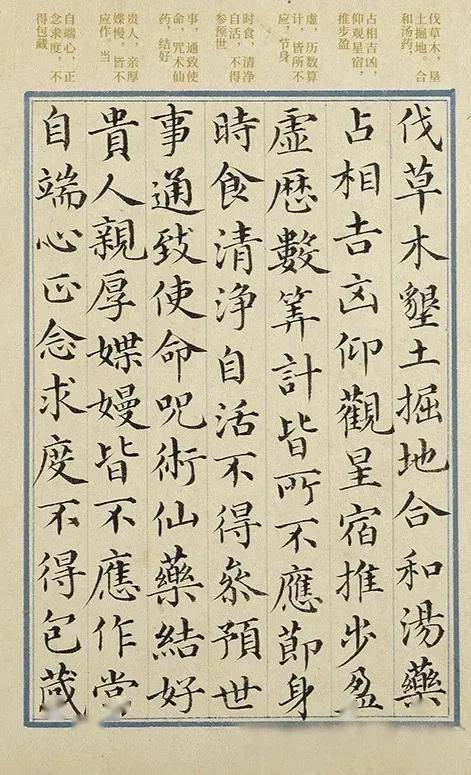 伐草木，垦
土掘地。合
和汤药；
占相吉凶，
仰观星宿，
推步盈
虚，历数算
计，皆所不
应。节身
时食，清净
自活，不得
参预世
事，通致使
命，咒术仙
药，结好
贵人，亲厚
媟慢，皆不
应作。当
自端心，正
念求度，不
得包藏
伐草木墾土掘地合和湯藥
占相吉凶仰觀星宿推步盈
虛歷數筭計皆所不應節身
時食清浄自活不得叅預世
事通致使命呪術仙藥結好
貴人親厚媟嫚皆不應作當
自端心正念求度不得包藏